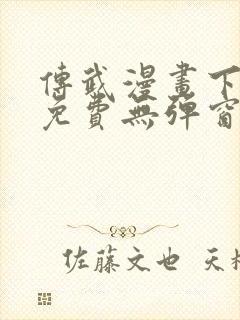 傳武漫畫下
免費無彈窗
佐藤文也 天